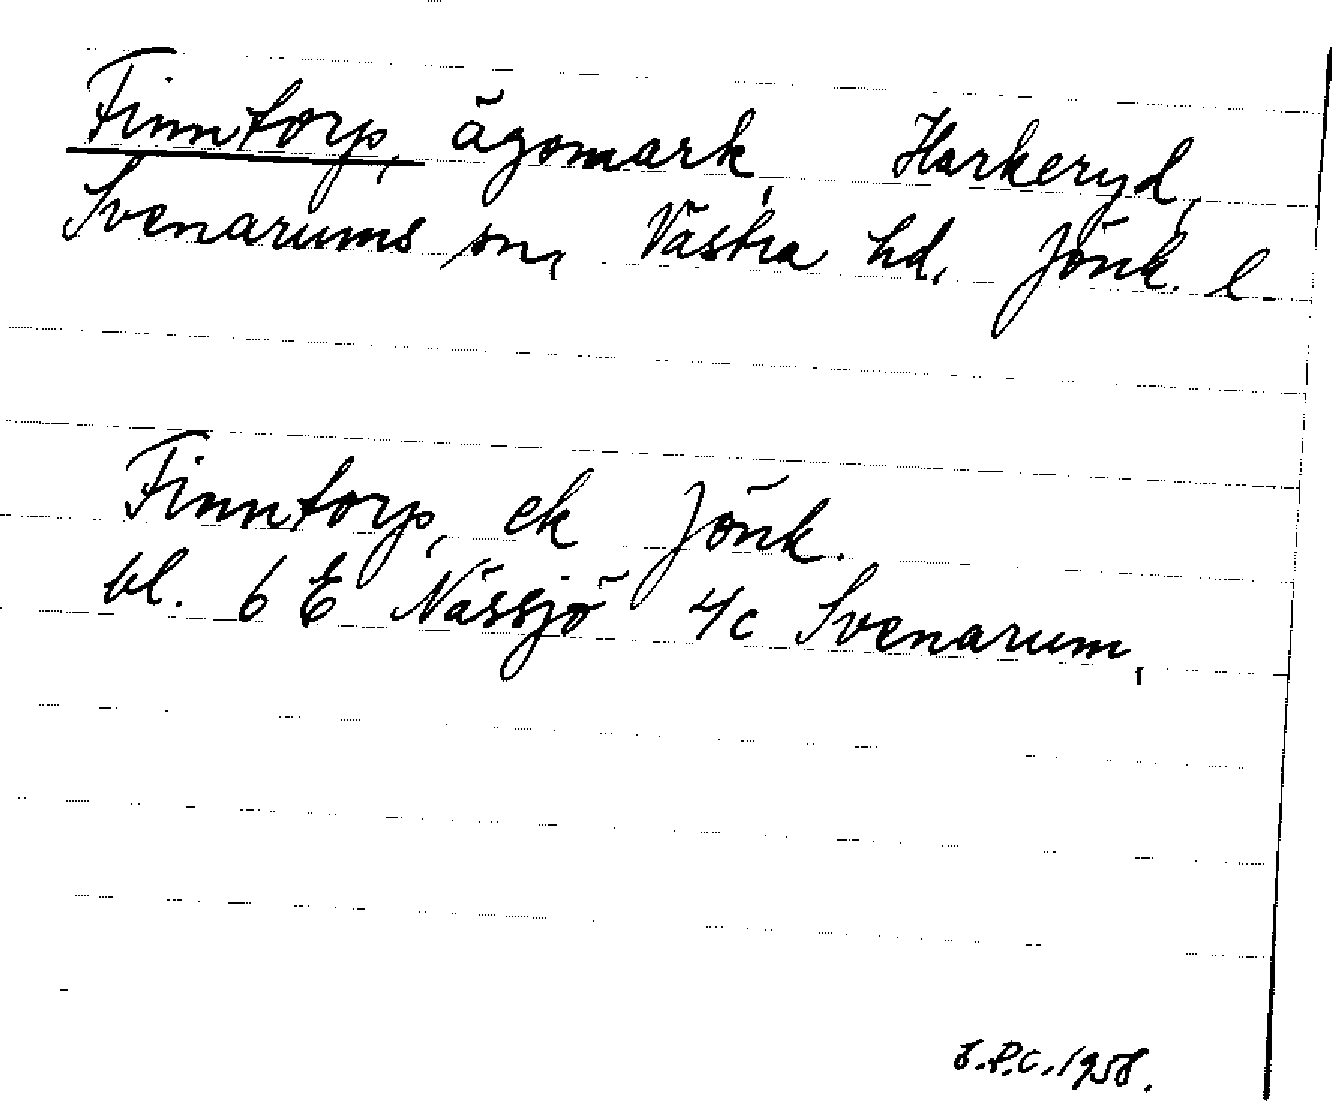 Finntorp, ägomark, Harkeryd,
Svenarums sn, Västra hd, Jönk. l
Finntorp, ek Jönk.
bl. 6 E Nässjö 4c Svenarum,
1958.